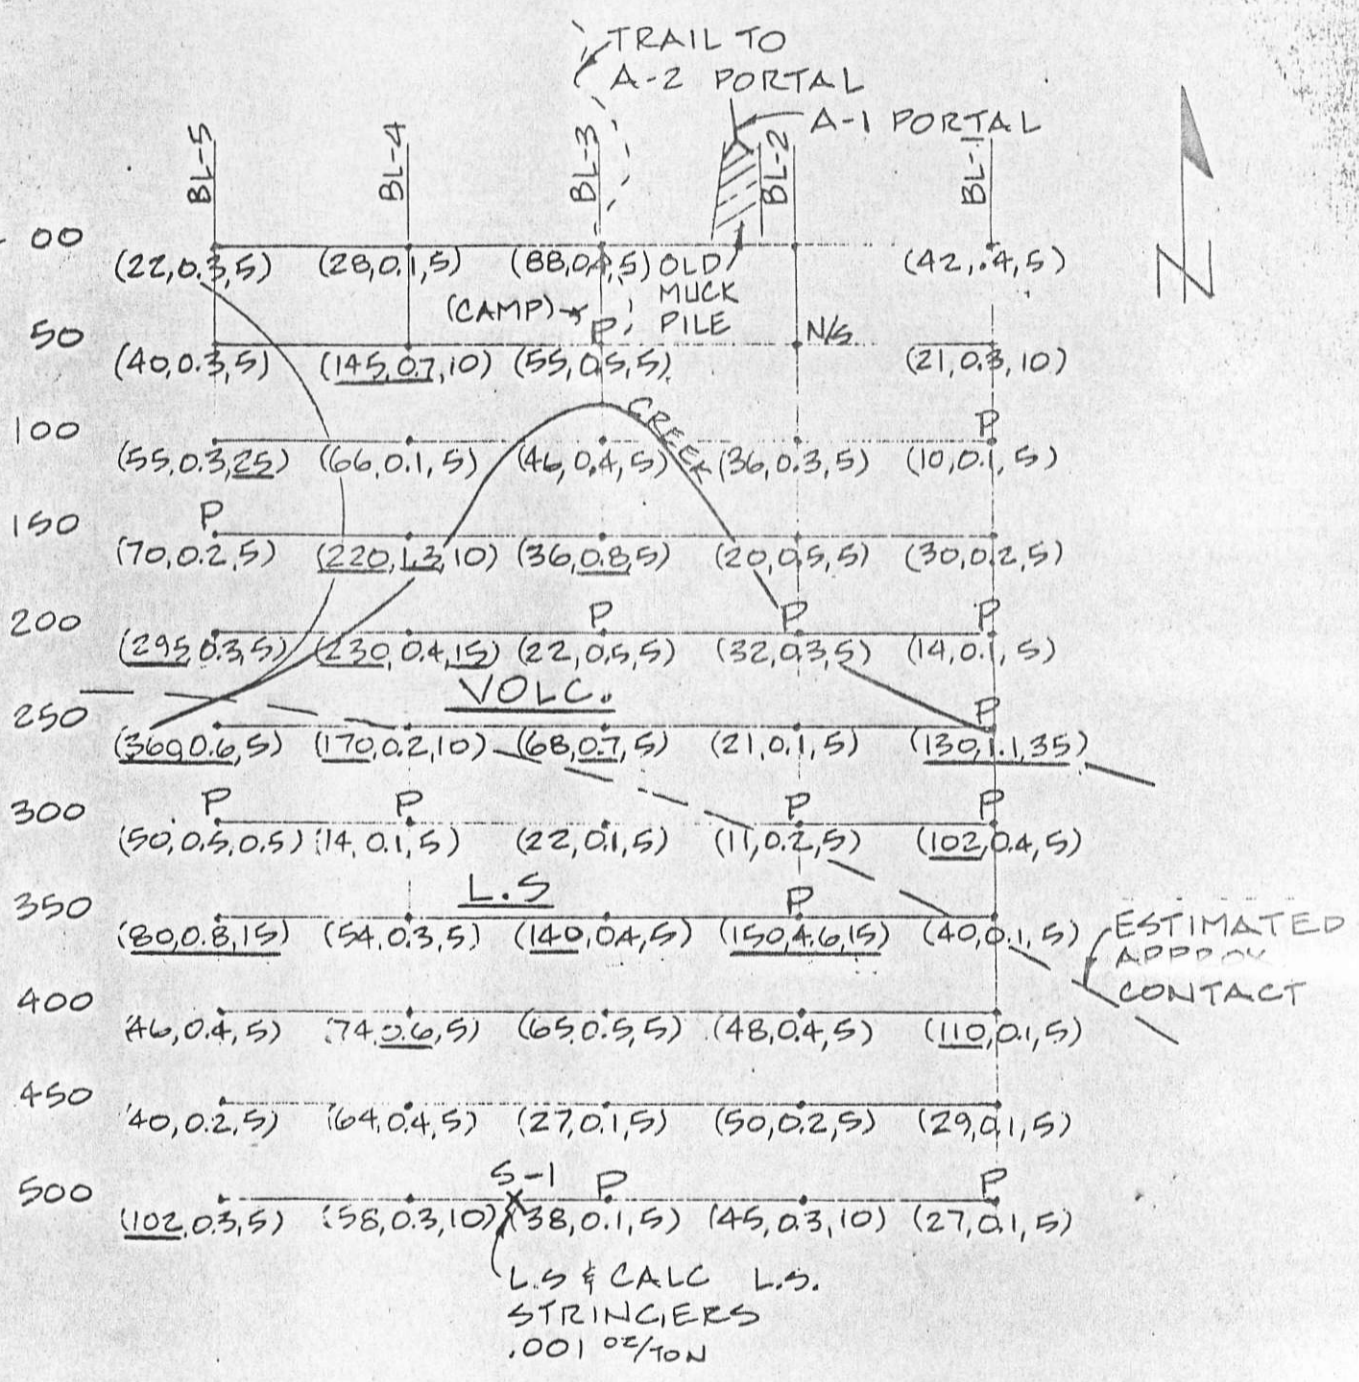 TRAIL TO
A-2 PORTAL
A-1 PORTAL
BL-5 BL-4 BL-3 BL-2 BL-1
N
00
(22,0.3,5) (28,0.1,5) (88,0.4,5) OLD (42,.4,5)
(CAMP) MUCK
50 P PILE N/S
(40,0.3,5) (145,0.7,10) (55,0.5,5) (21,0.3,10)
CREEK
100 P
(55,0.3,25) (66,0.1,5) (46,0.4,5) (36,0.3,5) (10,0.1,5)
150 P
(70,0.2,5) (220,1.3,10) (36,0.8,5) (20,0.5,5) (30,0.2,5)
200 P P P
(295,0.3,5) (230,0.4,15) (22,0.5,5) (32,0.3,5) (14,0.1,5)
VOLC.
250 P
(360,0.6,5) (170,0.2,10) (68,0.7,5) (21,0.1,5) (130,1.1,35)
300 P P P P
(50,0.5,0.5) (14,0.1,5) (22,0.1,5) (11,0.2,5) (102,0.4,5)
L.S
350 P
(80,0.8,15) (54,0.3,5) (140,0.4,5) (150,4.6,15) (40,0.1,5) ESTIMATED
APPROX
CONTACT
400
(46,0.4,5) (74,0.6,5) (65,0.5,5) (48,0.4,5) (110,0.1,5)
450
(40,0.2,5) (64,0.4,5) (27,0.1,5) (50,0.2,5) (29,0.1,5)
500 S-1 P P
(102,0.3,5) (58,0.3,10) (38,0.1,5) (45,0.3,10) (27,0.1,5)
L.S & CALC L.S.
STRINGERS
.001 OZ/TON